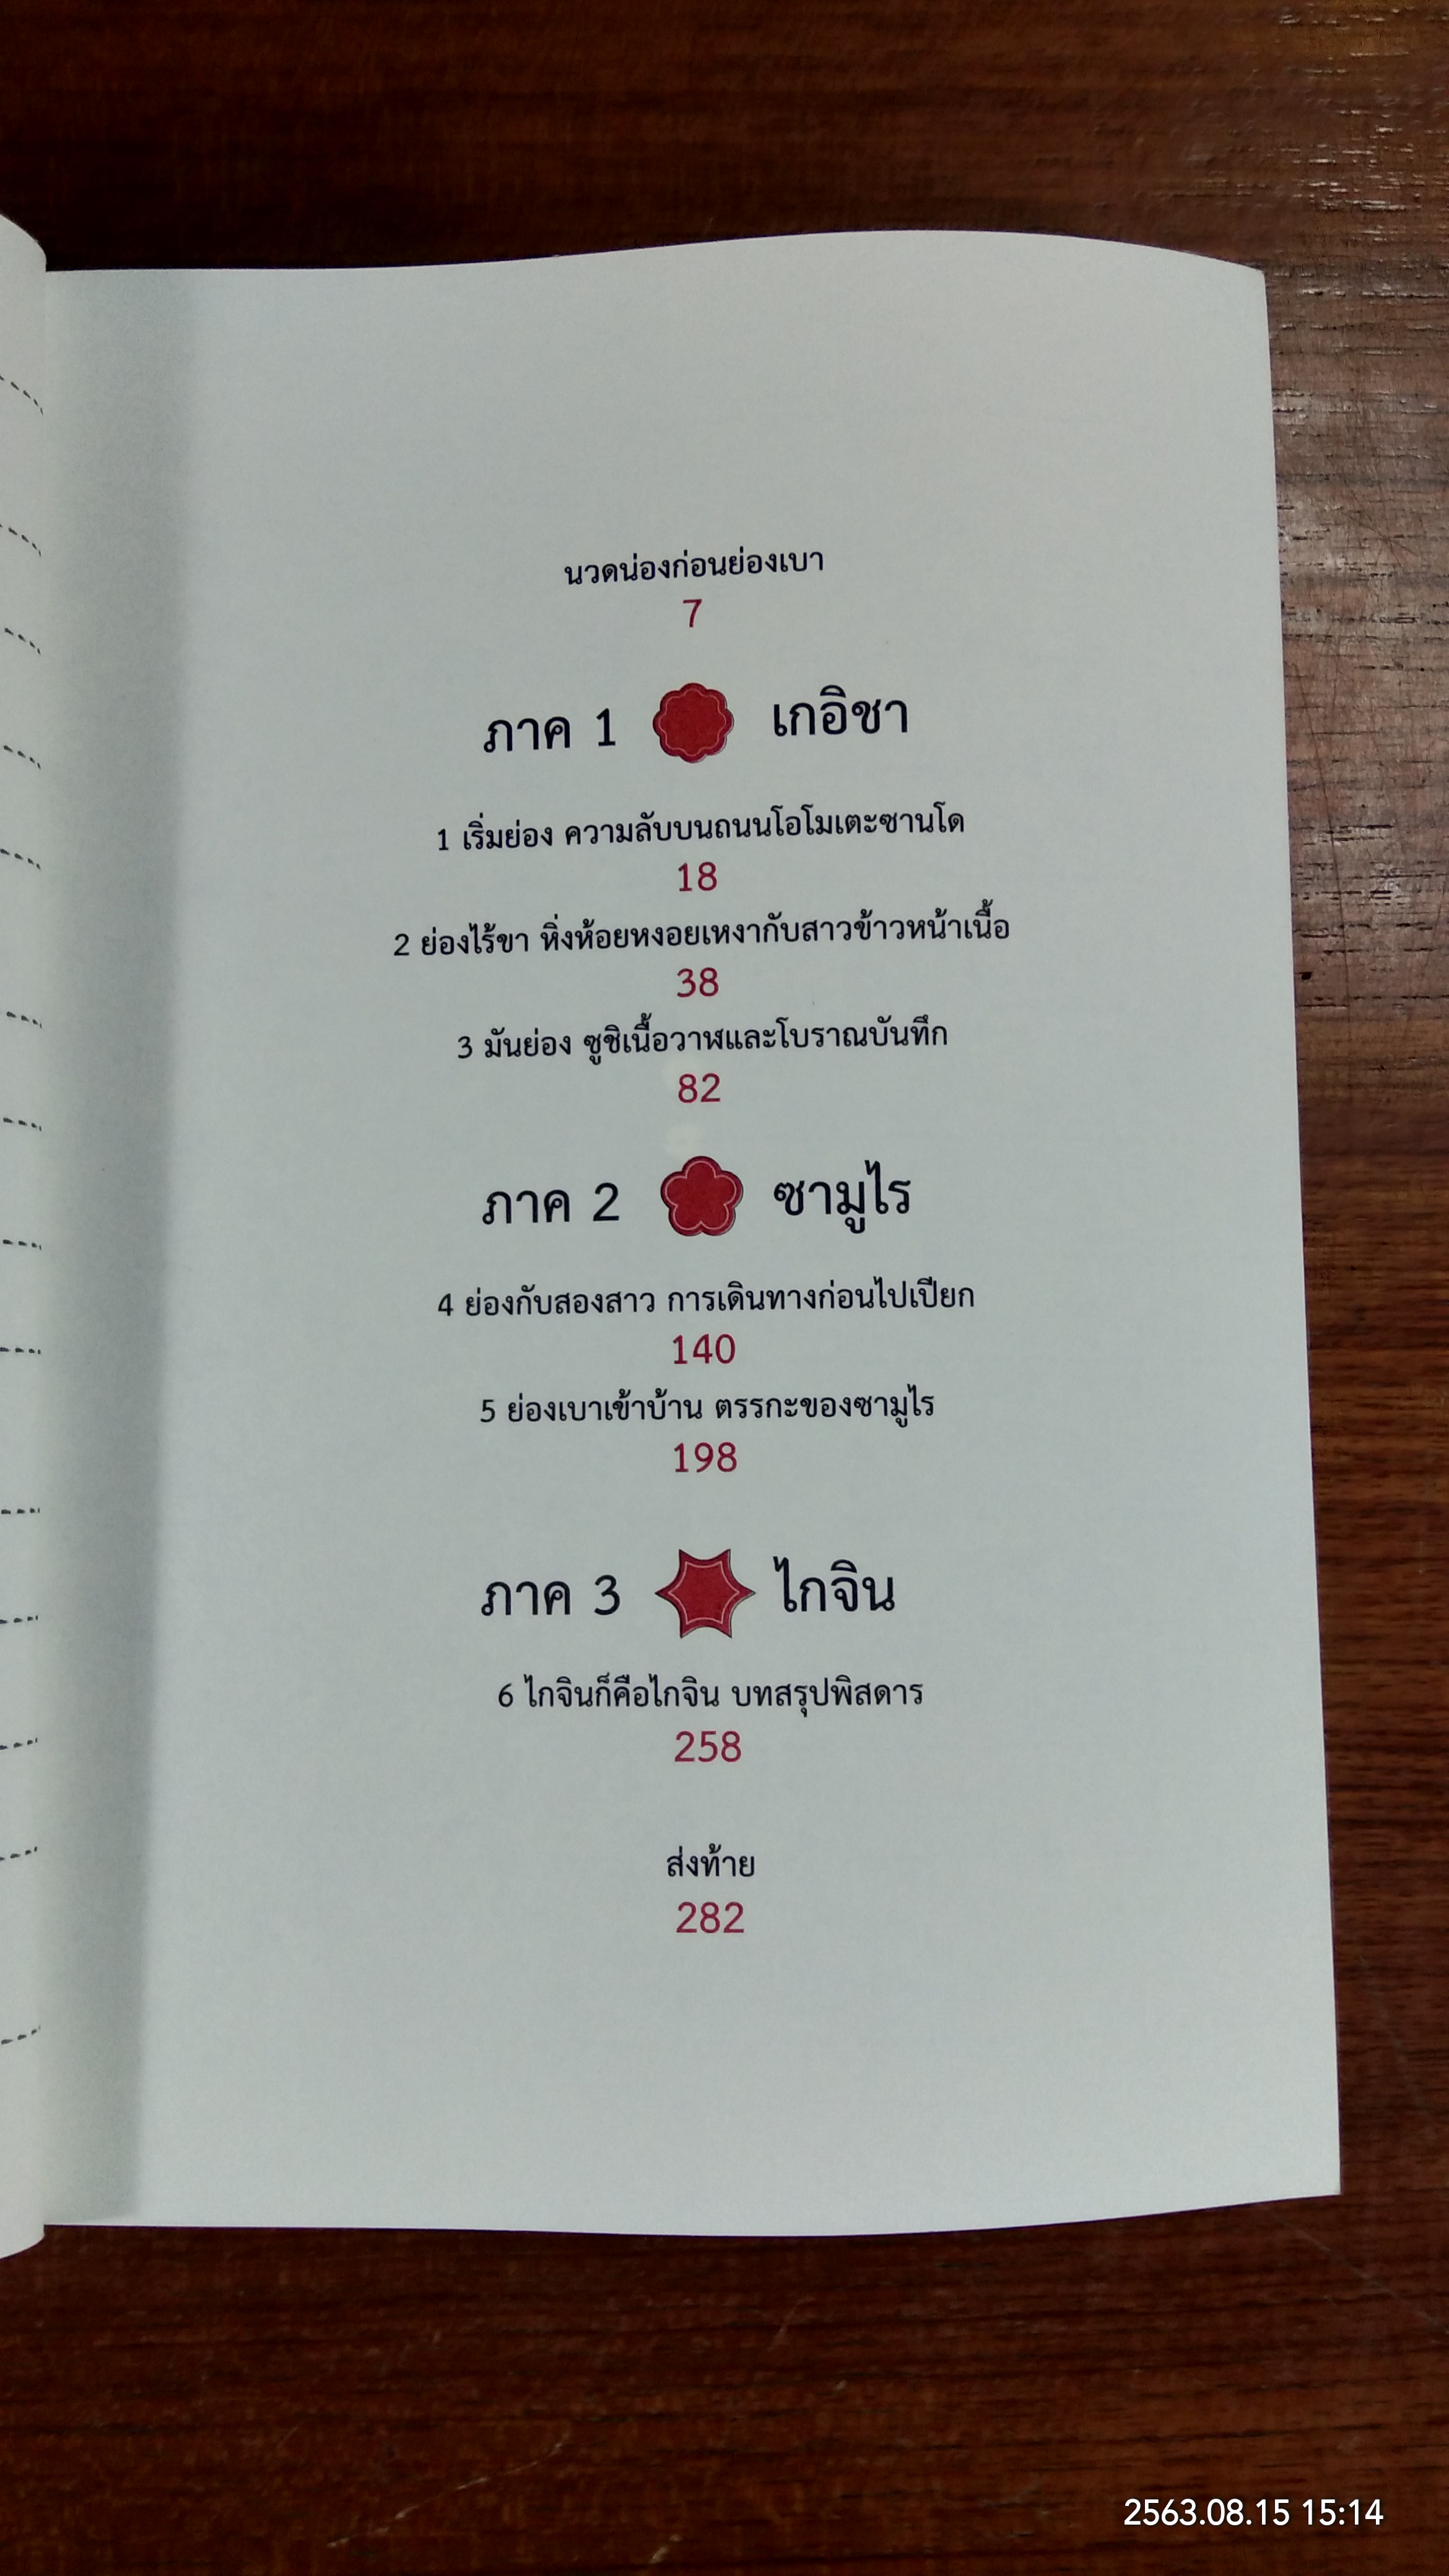 นวดน่องก่อนย่องเบา
7
ภาค 1 เกอิชา
1 เริ่มย่อง ความลับบนถนนโอโมเตะซานโด
18
2 ย่องไร้ขา หิ่งห้อยหงอยเหงากับสาวข้าวหน้าเนื้อ
38
3 มันย่อง ซูชิเนื้อวาฬและโบราณบันทึก
82
ภาค 2 ซามูไร
4 ย่องกับสองสาว การเดินทางก่อนไปเปียก
140
5 ย่องเบาเข้าบ้าน ตรรกะของซามูไร
198
ภาค 3 ไกจิน
6 ไกจินก็คือไกจิน บทสรุปพิสดาร
258
ส่งท้าย
282
2563.08.15 15:14